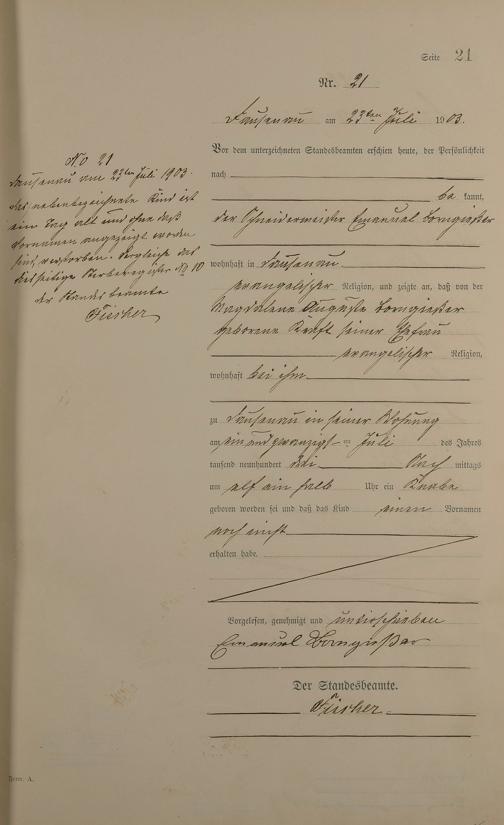 Seite 21
Nr. 21
Dausenau am 23ten Juli 1903.
Vor dem unterzeichneten Standesbeamten erschien heute, der Persönlichkeit
nach
be kannt,
der Schneidermeister Emanuel
wohnhaft in Dausenau
evangelischer Religion, und zeigte an, daß von der
Magdalene Auguste
geborene Kraft seiner Ehefrau
evangelischer Religion,
wohnhaft bei ihm
zu Dausenau in seiner Wohnung
am ein und zwanzigsten Juli des Jahres
tausend neunhundert drei Nach mittags
um elf ein halb Uhr ein Knabe
geboren worden sei und daß das Kind einen Vornamen
noch nicht
erhalten habe.
Vorgelesen, genehmigt und unterschrieben
Emanuel
Der Standesbeamte.
Fischer
No 21
Dausenau am 23ten Juli 1903.
das nebenbezeichnete Kind ist
ein Tag alt und ohne daß
Vornamen angezeigt worden
sind, verstorben. Vergleiche das
diesseitige Sterberegister No 10
der Standesbeamte
Fischer
Form. A.